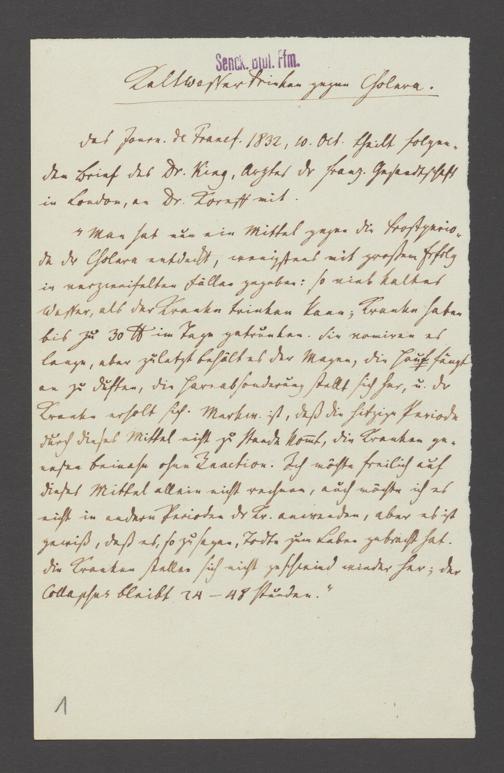 Senck. Bibl. Ffm.
Kaltwassertrinken gegen Cholera.
Das Journ. de Francf. 1832, 10. Oct. theilt folgen-
den Brief des Dr. King, Arztes der franz. Gesandtschaft
in London, an Dr. Koreff mit.
"Man hat nun ein Mittel gegen die Frostperio-
de der Cholera entdeckt, wenigstens mit großem Erfolg
in verzweifelten Fällen gegeben: so viel kaltes
Wasser, als der Kranke trinken kann; Kranke haben
bis zu 30 ℔ im Tage getrunken. Sie vomiren es
lange, aber zuletzt behält es der Magen, die Haut fängt
an zu duften, die Harnabsonderung stellt sich her, u. der
Kranke erholt sich. Merkw. ist, daß die hitzige Periode
durch dieses Mittel nicht zu Stande kommt, die Kranken ge-
nesen beinahe ohne Reaction. Ich möchte freilich auf
dieses Mittel allein nicht rechnen, auch möchte ich es
nicht in andern Perioden der Kr. anwenden, aber es ist
gewiß, daß es, so zu sagen, Todte zum Leben gebracht hat.
Die Kranken stellen sich nicht geschwind wieder her; der
Collapsus bleibt 24 – 48 Stunden."
1